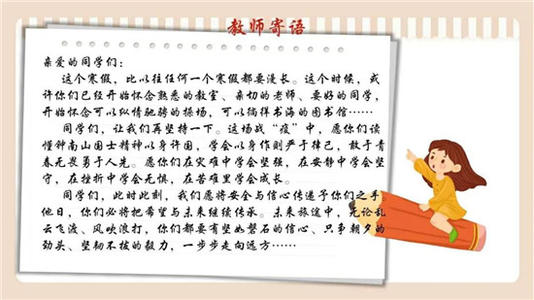 教师寄语
亲爱的同学们：
这个寒假，比以往任何一个寒假都要漫长。这个时候，或
许你们已经开始怀念熟悉的教室、亲切的老师、要好的同学，
开始怀念可以纵情驰骋的操场，可以徜徉书海的图书馆……
同学们，让我们再坚持一下。这场战“疫”中，愿你们读
懂钟南山国士精神以身许国，学会以身作则严于律己，敢于青
春无畏勇于人先。愿你们在灾难中学会坚强，在安静中学会坚
守，在挫折中学会无惧，在苦难里学会成长。
同学们，此时此刻，我们愿将安全与信心传递予你们之手。
他日，你们必将把希望与未来继续传承。未来旅途中，无论乱
云飞渡、风吹浪打，你们都要有坚如磐石的信心、只争朝夕的
劲头、坚韧不拔的毅力，一步步走向远方……